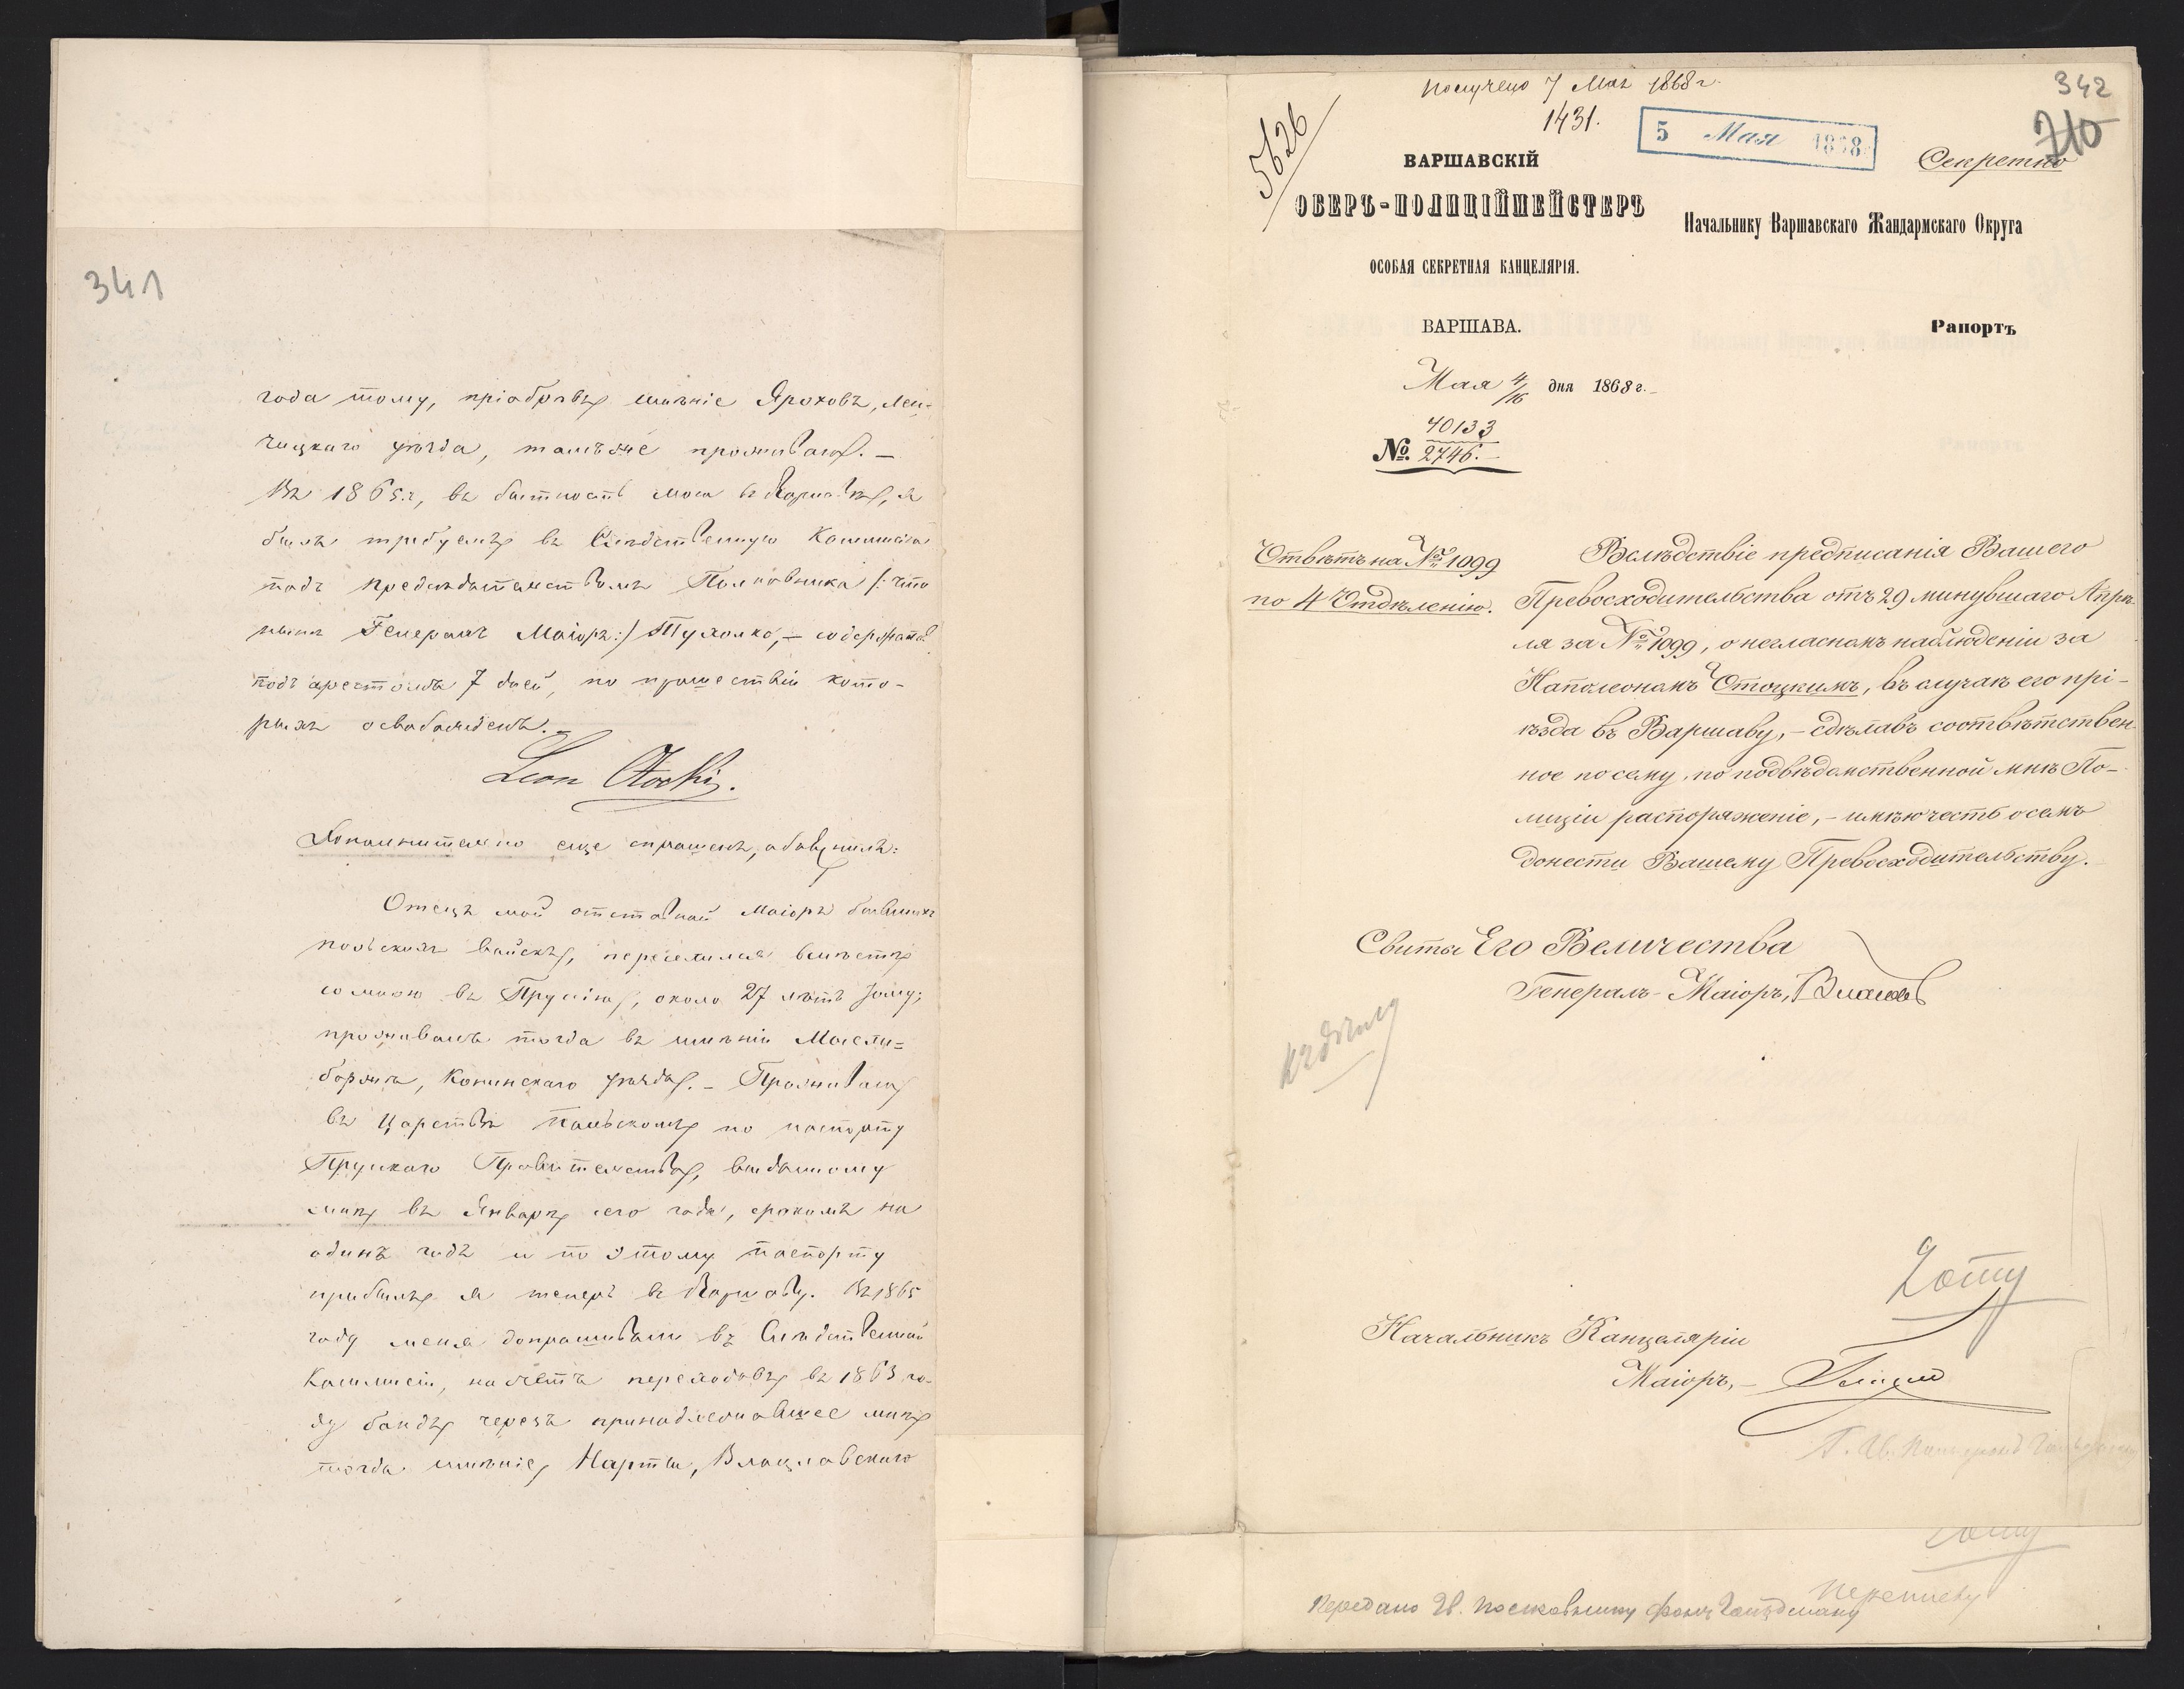 341
года тому, пріобрѣвъ имѣніе Яроховъ, Лен-
чицкаго уѣзда, тамъ же проживаю. —
Въ 1865 г, въ бытность мою въ Варшавѣ, я
былъ требуемъ въ Слѣдственную Коммисію
подъ предсѣдательствомъ Полковника /: что
нынѣ Генералъ Маіоръ:/ Тухолко, — содержался
подъ арестомъ 7 дней, по прошествіи кото-
рыхъ освобожденъ. —
Leon Otocki.
Дополнительно еще спрошенъ, объяснилъ:
Отецъ мой отставной Маіоръ бывшихъ
польскихъ войскъ, переселился вмѣстѣ
со мною въ Пруссію, около 27 лѣтъ тому;
проживалъ тогда въ имѣніи Мысли-
боржъ, Конинскаго уѣзда. — Проживаю
въ Царствѣ Польскомъ по паспорту
Прускаго Правительства, выданному
мнѣ въ Январѣ сего года, срокомъ на
одинъ годъ и по этому паспорту
прибылъ я теперь въ Варшаву. Въ 1865
году меня допрашивали въ Слѣдственной
Коммисіи, на счетъ переходовъ въ 1863 го-
ду бандъ черезъ принадлежавшее мнѣ
тогда имѣніе, Нарты, Влоцлавскаго
Получено 7 Мая 1868 г.
1431.
5626
5 Мая 1868
342
210
Секретно
ВАРШАВСКІЙ
ОБЕРЪ-ПОЛИЦІЙМЕЙСТЕРЪ
Начальнику Варшавскаго Жандармскаго Округа
ОСОБАЯ СЕКРЕТНАЯ КАНЦЕЛЯРІЯ.
ВАРШАВА.
Рапортъ
Мая 4/16 дня 1868 г.
40133
№ 2746.
Отвѣтъ на № 1099
по 4 Отдѣленію.
Вслѣдствіе предписанія Вашего
Превосходительства отъ 29 минувшаго Апрѣ-
ля за № 1099, о негласномъ наблюденіи за
Наполеономъ Отоцкимъ, въ случаѣ его прі-
ѣзда въ Варшаву, — сдѣлавъ соотвѣтствен-
ное по сему, по подвѣдомственной мнѣ По-
лиціи распоряженіе, — имѣю честь о семъ
донести Вашему Превосходительству.
Свиты Его Величества
Генералъ-Маіоръ, Власовъ
къ дѣлу
Начальникъ Канцеляріи
Маіоръ, —
Передано Гв. Полковнику фонъ
переписку